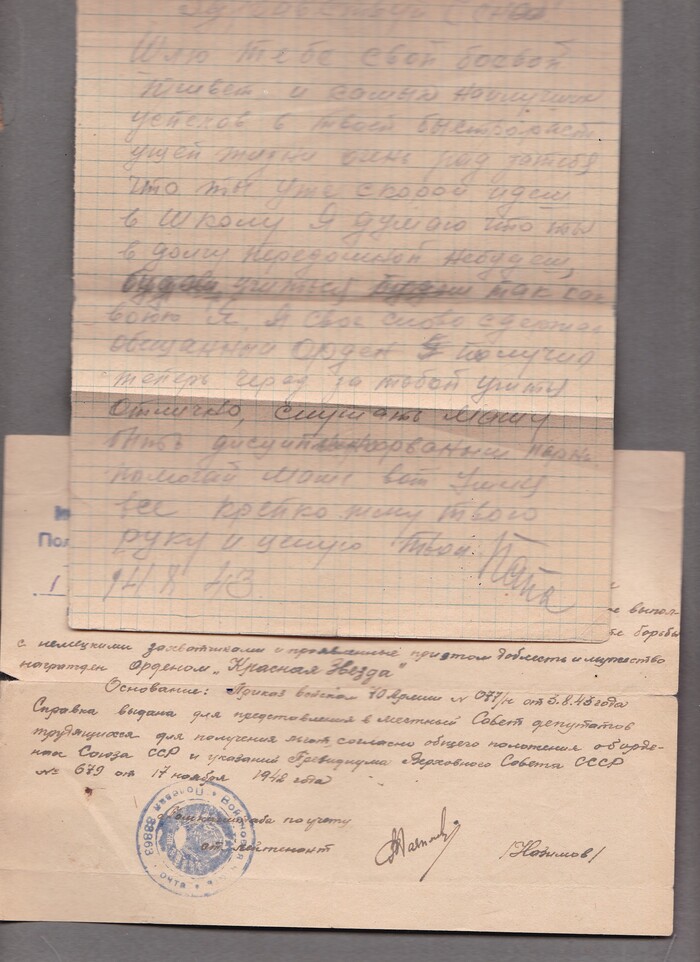 Здравствуй Сеня
Шлю тебе свой боевой
привет и самых наилучших
успехов в твоей
жизни очень рад
что ты уже скоро идеш
в школу Я думаю что ты
в долгу передомной небудеш,
будеш учиться так как
воюю Я. Я свое слово сдержал
обещанный Орден Я получил
теперь черед за тобой учиться
отлично, слушать Маму
быть дисциплинированым
помогай Маме вот
все крепко жму твою
руку и целую Твой Папа
14/X 43.
Пол
1
борьбы
с немецкими захватчиками и проявленные при этом доблесть и мужество
награжден Орденом „Красная Звезда"
Основание: Приказ войскам 70 Армии № 077/н от 3.8.43 года
Справка выдана для представления в местный Совет депутатов
трудящихся для получения льгот, согласно общего положения об орде-
нах Союза ССР и указаний Президиума Верховного Совета СССР
№ 679 от 17 ноября 1942 года
штаба по учету
ст. лейтенант
/Назимов/
Войсковая
Полевая
почта
33863